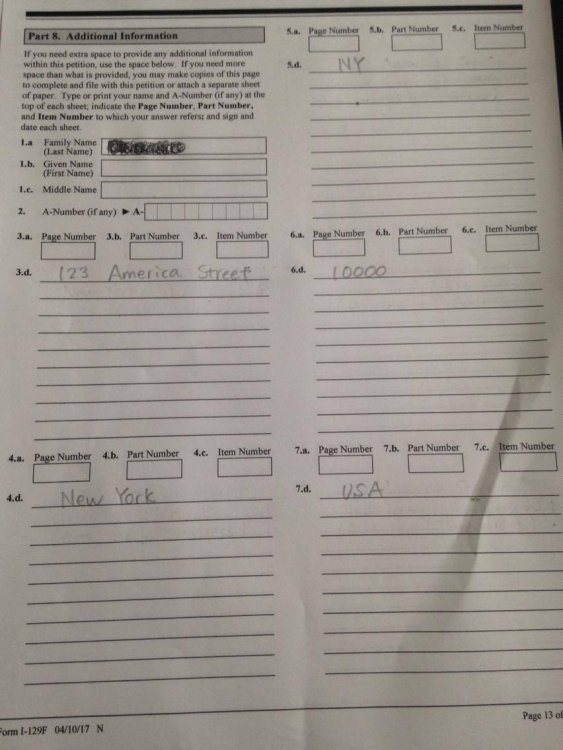 Part 8. Additional Information
If you need extra space to provide any additional information
within this petition, use the space below. If you need more
space than what is provided, you may make copies of this page
to complete and file with this petition or attach a separate sheet
of paper. Type or print your name and A-Number (if any) at the
top of each sheet; indicate the Page Number, Part Number,
and Item Number to which your answer refers; and sign and
date each sheet.
1.a Family Name
(Last Name)
1.b. Given Name
(First Name)
1.c. Middle Name
2. A-Number (if any) ► A-
3.a. Page Number 3.b. Part Number 3.c. Item Number
3.d. 123 America Street
4.a. Page Number 4.b. Part Number 4.c. Item Number
4.d. New York
5.a. Page Number 5.b. Part Number 5.c. Item Number
5.d. NY
6.a. Page Number 6.b. Part Number 6.c. Item Number
6.d. 10000
7.a. Page Number 7.b. Part Number 7.c. Item Number
7.d. USA
Form I-129F 04/10/17 N
Page 13 of